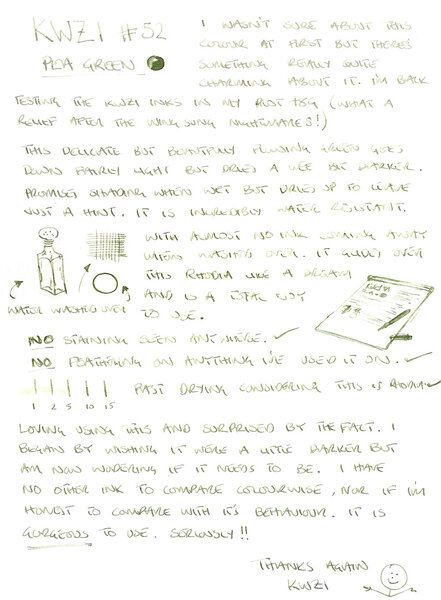 KWZI #52
PEA GREEN
I WASN'T SURE ABOUT THIS
COLOUR AT FIRST BUT THERE'S
SOMETHING REALLY QUITE
CHARMING ABOUT IT. I'M BACK
TESTING THE KWZI INKS IN MY TRUST 78G (WHAT A
RELIEF AFTER THE WING SUNG NIGHTMARES!)
THIS DELICATE BUT BEAUTIFULLY FLOWING GREEN GOES
DOWN FAIRLY LIGHT BUT DRIES A WEE BIT DARKER.
PROMISES SHADING WHEN WET BUT DRIES UP TO LEAVE
JUST A HINT. IT IS INCREDIBLY WATER RESISTANT.
WITH ALMOST NO INK COMING AWAY
WHEN WASHED OVER. IT GLIDES OVER
THIS RHODIA LIKE A DREAM
AND IS A TOTAL JOY
TO USE.
WATER WASHED OVER
NO STAINING SEEN ANYWHERE. ✓
NO FEATHERING ON ANYTHING I'VE USED IT ON. ✓
1 2 5 10 15
FAST DRYING CONSIDERING THIS IS RHODIA ✓
LOVING USING THIS AND SURPRISED BY THE FACT. I
BEGAN BY WISHING IT WERE A LITTLE DARKER BUT
AM NOW WONDERING IF IT NEEDS TO BE. I HAVE
NO OTHER INK TO COMPARE COLOURWISE, NOR IF I'M
HONEST TO COMPARE WITH IT'S BEHAVIOUR. IT IS
GORGEOUS TO USE. SERIOUSLY!!
THANKS AGAIN
KWZI